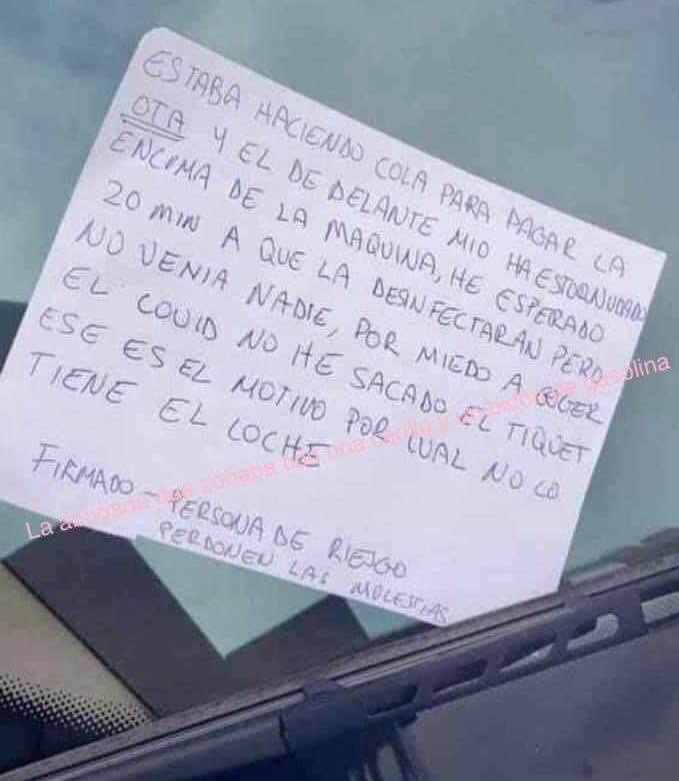 ESTABA HACIENDO COLA PARA PAGAR LA
OTA Y EL DE DELANTE MIO HA ESTORNUDADO
ENCIMA DE LA MAQUINA, HE ESPERADO
20 MIN A QUE LA DESINFECTARAN PERO
NO VENIA NADIE, POR MIEDO A COGER
EL COVID NO HE SACADO EL TIQUET
ESE ES EL MOTIVO POR CUAL NO LO
TIENE EL COCHE
FIRMADO - PERSONA DE RIESGO
PERDONEN LAS MOLESTIAS
La que soñaba con una cerilla y un bidón de gasolina